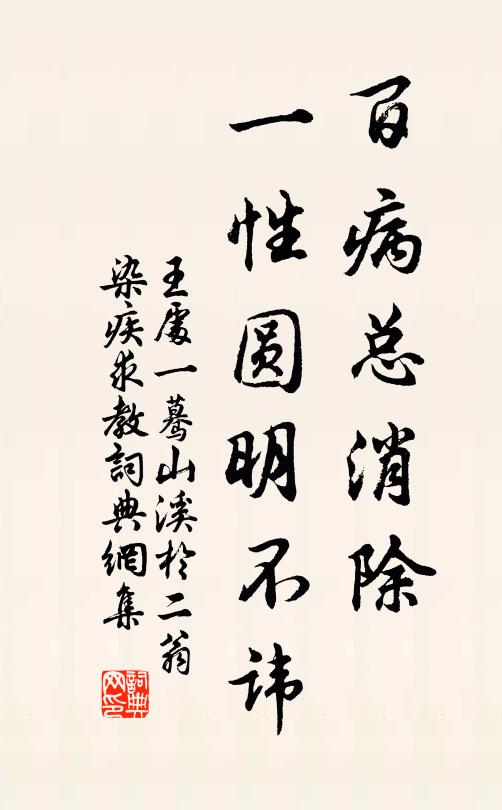 百病总消除
一性圆明不讳
王處一驀山溪於二翁
染疾求教詞典網集
詞典
网印